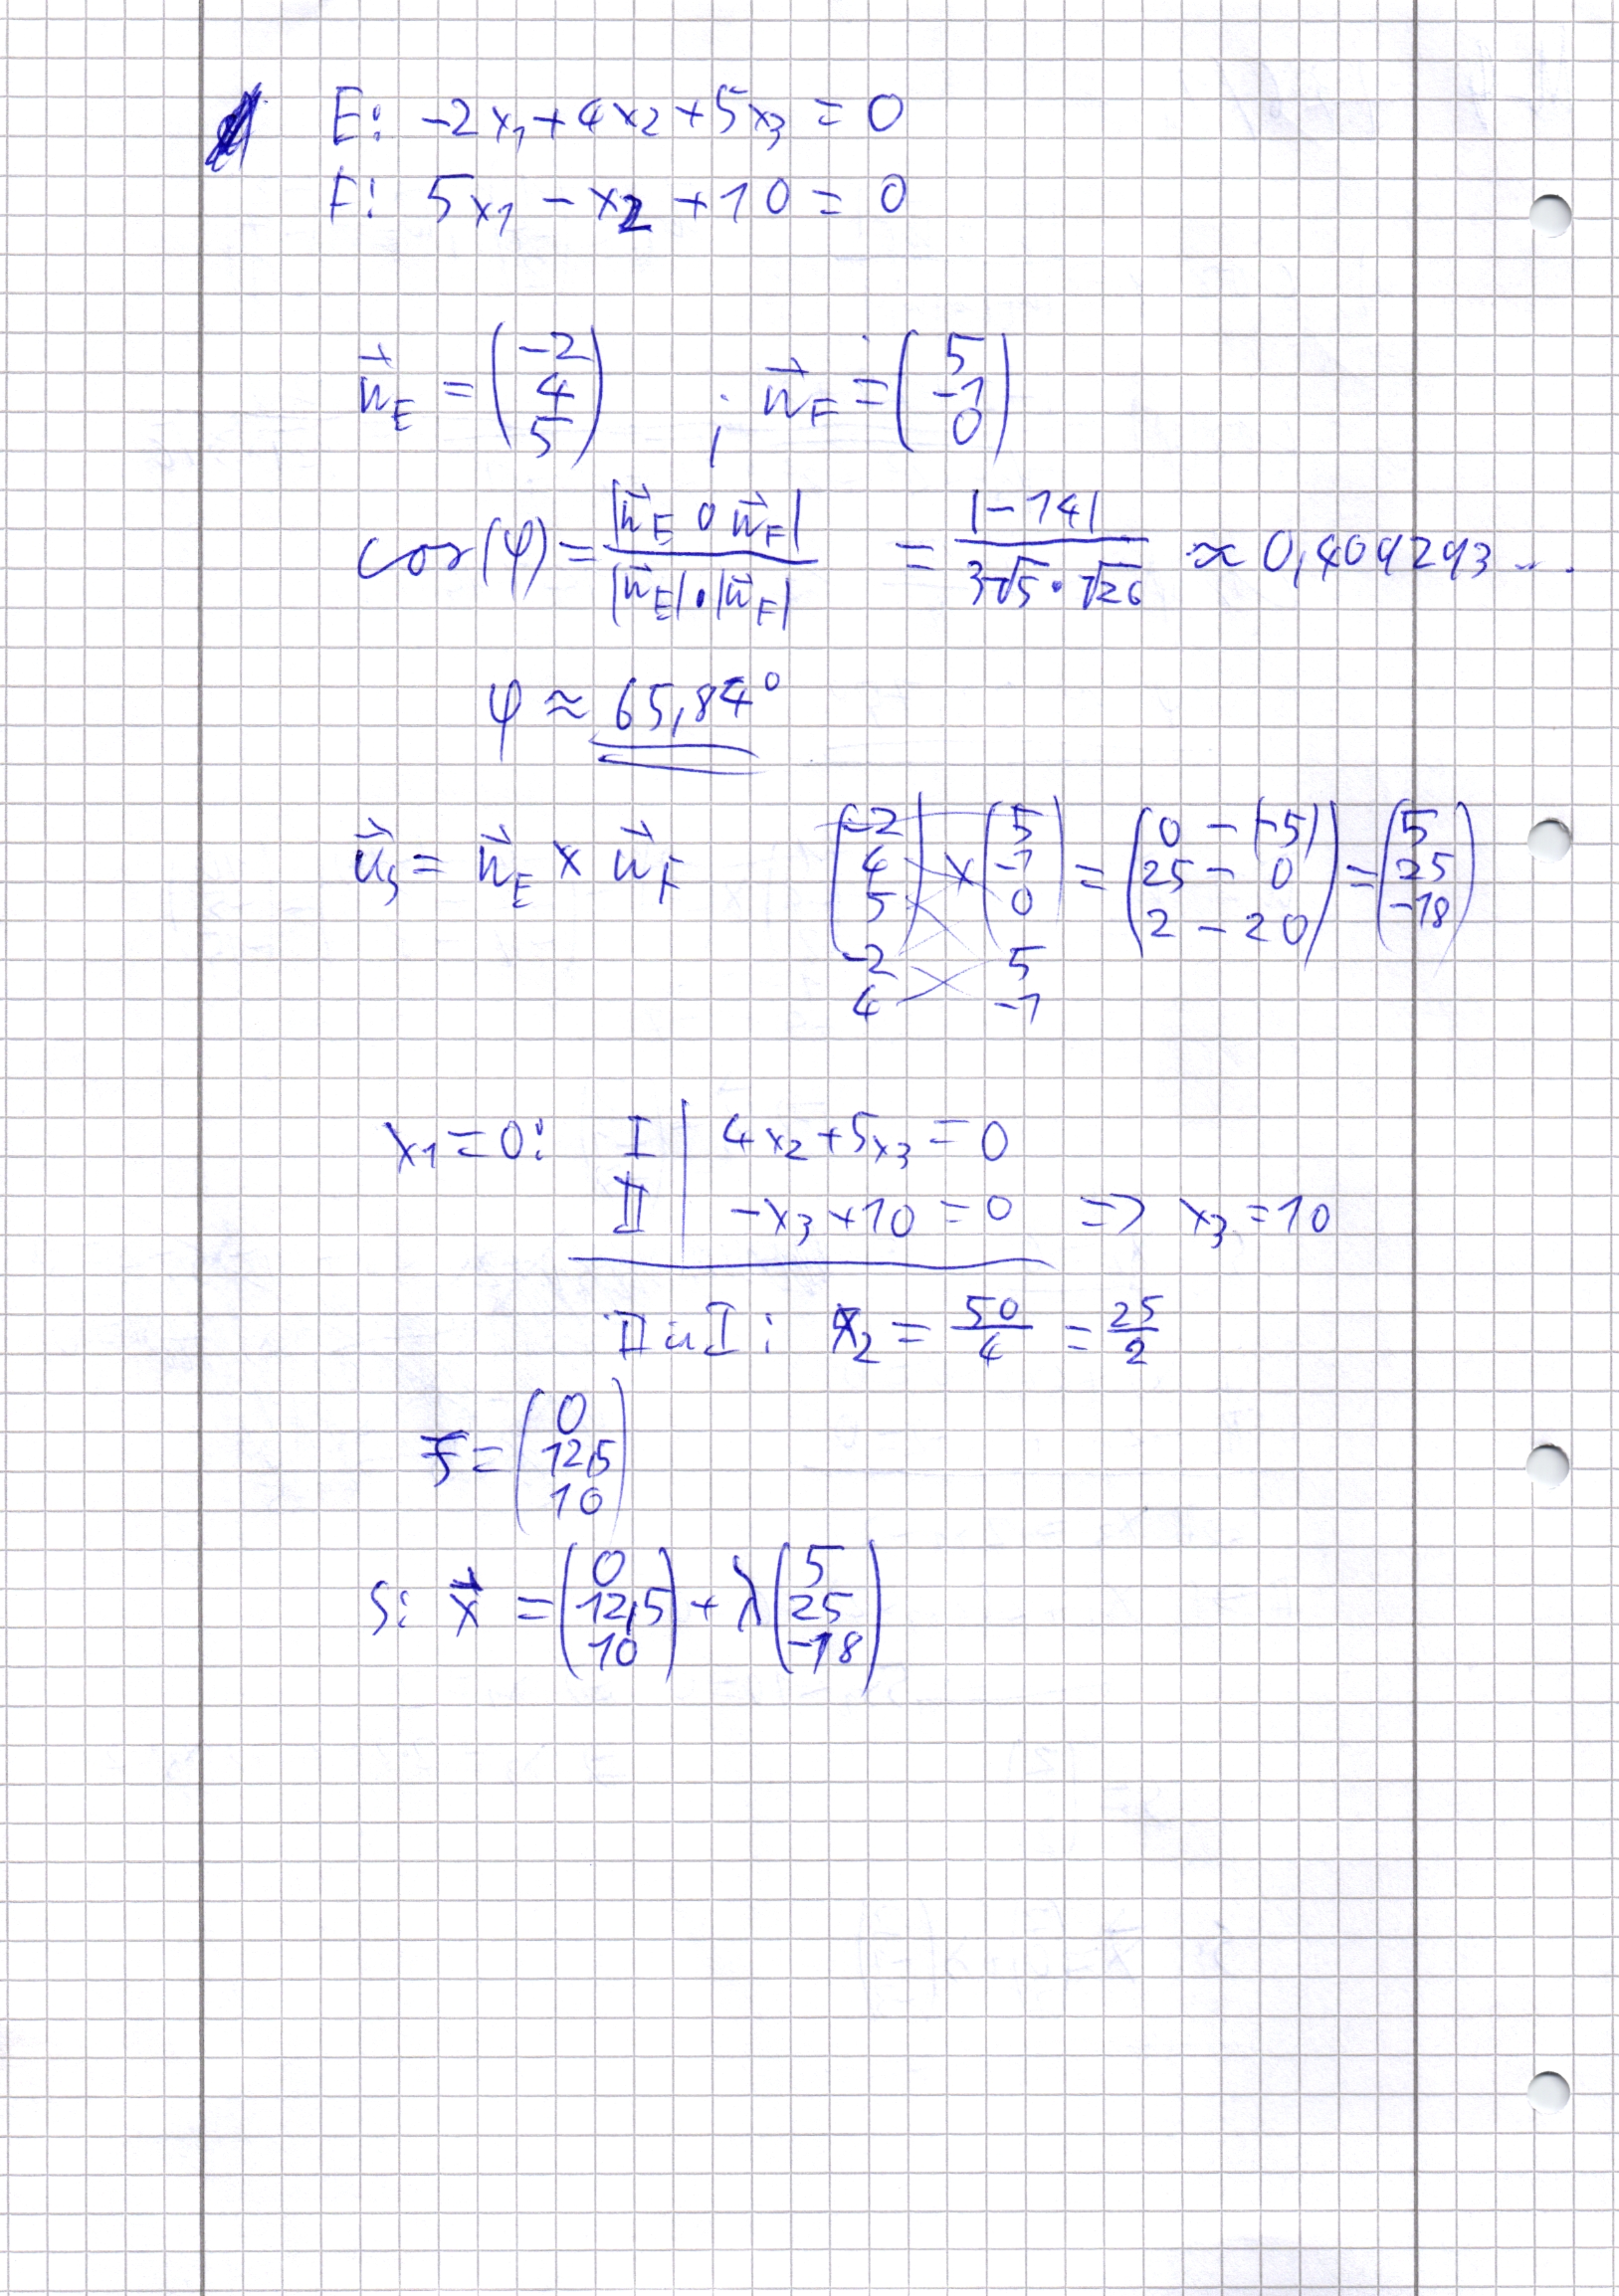 E: -2x₁ + 4x₂ + 5x₃ = 0
F: 5x₁ - x₂ + 10 = 0
n⃗_E = (-2 4 5) ; n⃗_F = (5 -1 0)
cos(φ) = |n⃗_E ∘ n⃗_F| / |n⃗_E|·|n⃗_F| = |-14| / 3√5·√26 ≈ 0,409293...
φ ≈ 65,84°
u⃗_s = n⃗_E × n⃗_F (-2 4 5) × (5 -1 0) = (0 - (-5) 25 - 0 2 - 20) = (5 25 -18)
-2 5
4 -1
x₁ = 0: I | 4x₂ + 5x₃ = 0
II | -x₃ + 10 = 0 => x₃ = 10
II in I: x₂ = 50/4 = 25/2
= (0 12,5 10)
s: x⃗ = (0 12,5 10) + λ (5 25 -18)